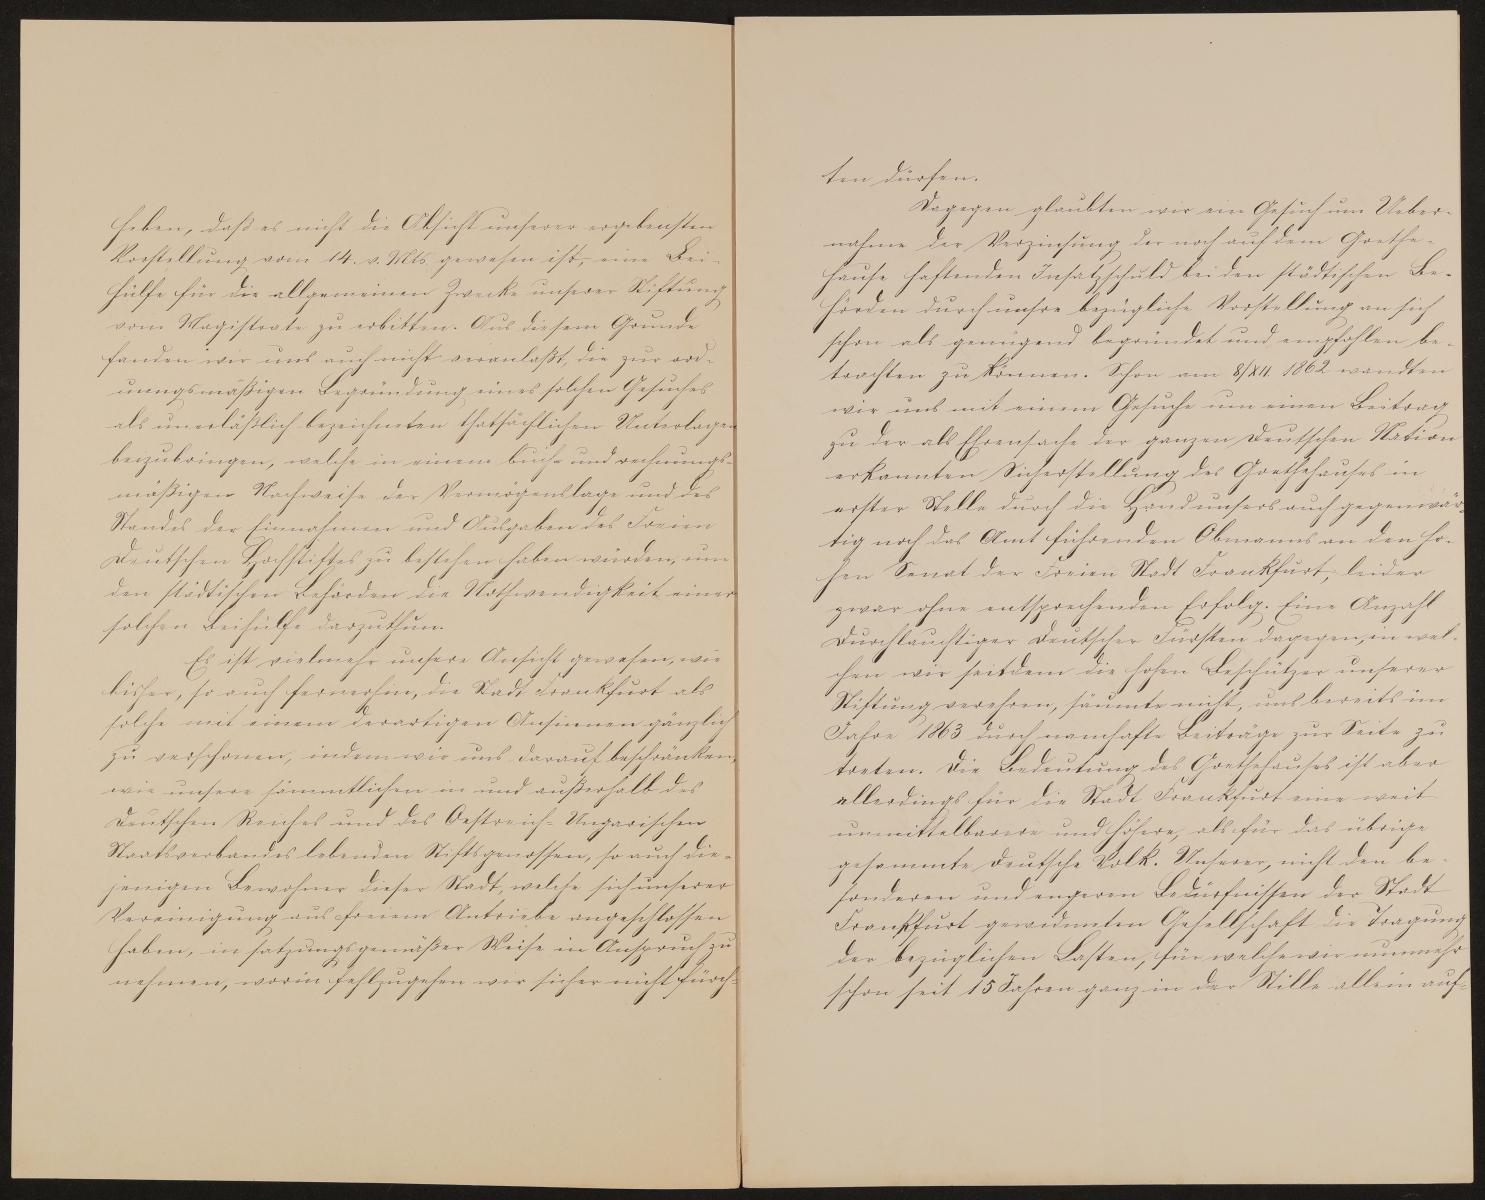 heben, daß es nicht die Absicht unserer ergebensten
Vorstellung vom 14. v. Mts. gewesen ist, eine Bei-
hülfe für die allgemeinen Zwecke unserer Stiftung
vom Magistrate zu erbitten. Aus diesem Grunde
fanden wir uns auch nicht veranlaßt, die zur ord-
nungsmäßigen Begründung eines solchen Gesuches
als unerläßlich bezeichneten thatsächlichen Unterlagen
beizubringen, welche in einem buch- und rechnungs-
mäßigen Nachweise der Vermögenslage und des
Standes der Einnahmen und Ausgaben des Freien
Deutschen Hochstiftes zu bestehen haben würden, um
den städtischen Behörden die Nothwendigkeit einer
solchen Beihülfe darzuthun.
Es ist vielmehr unsere Ansicht gewesen, wie
bisher, so auch fernerhin, die Stadt Frankfurt als
solche mit einem derartigen Ansinnen gänzlich
zu verschonen, indem wir uns darauf beschränken,
wie unsere sämmtlichen in und außerhalb des
Deutschen Reiches und des Oestreich-Ungarischen
Staatsverbandes lebenden Stiftsgenossen, so auch die-
jenigen Bewohner dieser Stadt, welche sich unserer
Vereinigung aus freiem Antriebe angeschlossen
haben, in satzungsgemäßer Weise in Anspruch zu
nehmen, worin fehlzugehen wir sicher nicht fürch-
ten dürfen.
Dagegen glaubten wir ein Gesuch um Ueber-
nahme der Verzinsung der noch auf dem Goethe-
hause haftenden Insatzschuld bei den städtischen Be-
hörden durch unsre bezügliche Vorstellung an sich
schon als genügend begründet und empfohlen be-
trachten zu können. Schon am 8/XII 1862 wandten
wir uns mit einem Gesuche um einen Beitrag
zu der als Ehrensache der ganzen Deutschen Nation
erkannten Sicherstellung des Goethehauses in
erster Stelle durch die Hand unsers auch gegenwär-
tig noch das Amt führenden Obmanns an den ho-
hen Senat der Freien Stadt Frankfurt, leider
zwar ohne entsprechenden Erfolg. Eine Anzahl
Durchlauchtiger Deutscher Fürsten dagegen, in wel-
chen wir seitdem die hohen Beschützer unserer
Stiftung verehren, säumte nicht, uns bereits im
Jahre 1863 durch namhafte Beiträge zur Seite zu
treten. Die Bedeutung des Goethehauses ist aber
allerdings für die Stadt Frankfurt eine weit
unmittelbarere und höhere, als für das übrige
gesammte Deutsche Volk. Unserer, nicht den be-
sonderen und engeren Bedürfnissen der Stadt
Frankfurt gewidmeten Gesellschaft die Tragung
der bezüglichen Lasten, für welche wir nunmehr
schon seit 15 Jahren ganz in der Stille allein auf-